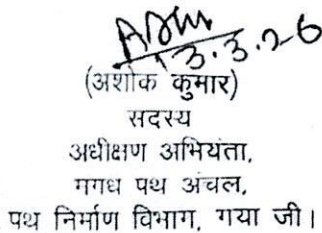 13.3.26
(अशोक कुमार)
सदस्य
अधीक्षण अभियंता,
मगध पथ अंचल,
पथ निर्माण विभाग, गया जी।